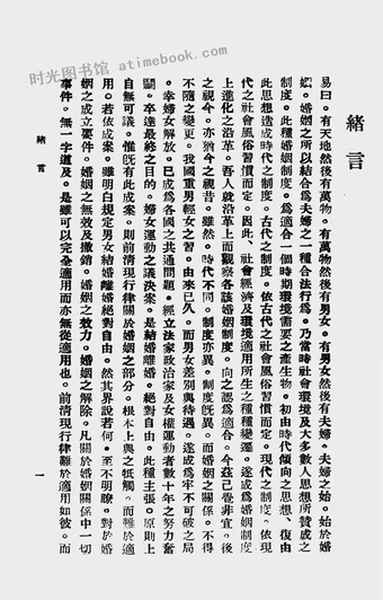 时光图书馆 atimebook.com
緒言
易曰。有天地然後有萬物。有萬物然後有男女。有男女然後有夫婦。夫婦之始。始於婚
姻。婚姻之所以結合爲夫婦之一種合法行爲。乃當時社會環境及大多數人思想所贊成之
制度。此種婚姻制度。爲適合一個時期環境需要之產生物。初由時代傾向之思想、復由
此思想造成時代之制度。古代之制度。依古代之社會風俗習慣而定。現代之制度。依現
代之社會風俗習慣而定。因此、社會經濟及環境適用所生之種種變遷。遂成爲婚姻制度
上進化之沿革。吾人就沿革上而觀察各該婚姻制度。向之認爲適合。今茲已覺非宜。後
之視今。亦猶今之視昔。雖然。時代不同。制度亦異。制度旣異。而婚姻之關係。不得
不隨之變更。我國重男輕女之習。由來已久。而男女差別與待遇。遂成爲牢不可破之局
。幸婦女解放。已成爲各國之共通問題。經立法家政治家及女權運動者數十年之努力奮
鬭。卒達最終之目的。婦女運動之議決案。是結婚離婚。絕對自由。此種主張。原則上
自無可議。惟旣有此成案。則前淸現行律關於婚姻之部分。根本上與之牴觸。而難於適
用。若依成案。雖明白規定男女結婚離婚絕對自由。然其界說若何。至不明瞭。對於婚
姻之成立要件。婚姻之無效及撤銷。婚姻之效力。婚姻之解除。凡關於婚姻關係中一切
事件。無一字道及。是雖可以完全適用而亦無從適用也。前淸現行律難於適用如彼。而
緒言
一